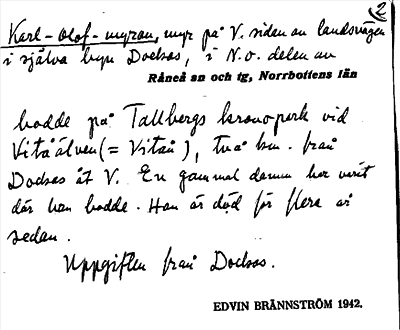 (2
Karl-Olof-myran, myr på V. sidan av landsvägen
i själva byn Dockas, i N.o. delen av
Råneå sn och tg, Norrbottens län
bodde på Tallbergs kronopark vid
Vitåälven (= Vitån), två km. från
Dockas åt V. En gammal damm har varit
där han bodde. Han är död för flera år
sedan.
Uppgiften från Dockas.
EDVIN BRÄNNSTRÖM 1942.